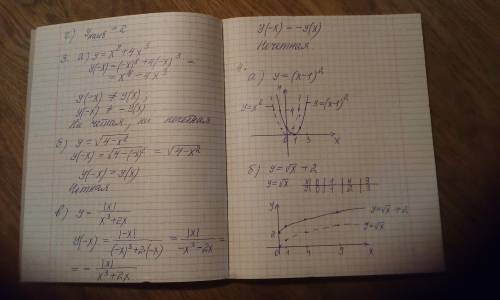 г) yнаиб = 2
3. а) y = x⁸ + 4x³
y(-x) = (-x)⁸ + 4(-x)³ =
= x⁸ - 4x³
y(-x) ≠ y(x),
y(-x) ≠ -y(x)
Ни четная, ни нечетная
б) y = √(4-x²)
y(-x) = √(4-(-x)²) = √(4-x²)
y(-x) = y(x)
Четная
в) y = |x|/(x³+2x)
y(-x) = |-x|/((-x)³+2·(-x)) = |x|/(-x³-2x) =
= - |x|/(x³+2x)
y(-x) = -y(x)
Нечетная
4.
а) y = (x-1)²
y=x² y=(x-1)²
0 1 3 x
б) y = √x + 2
y=√x x 0 1 4 9
y 0 1 2 3
y
y=√x + 2
2
y=√x
0 1 4 9 x